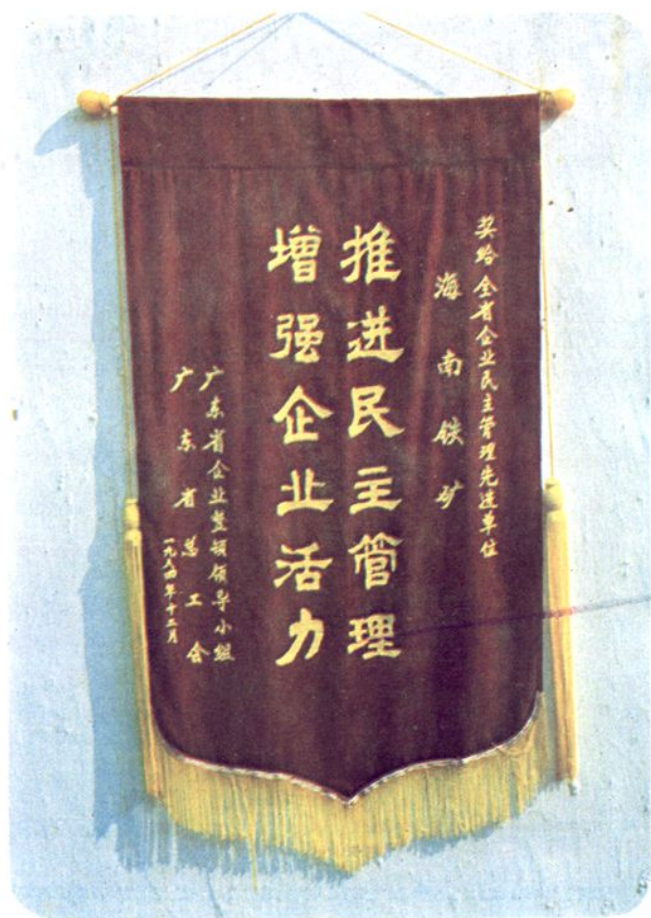 奖给全省企业民主管理先进单位
海南铁矿
推进民主管理
增强企业活力
广东省企业整顿领导小组
广东省总工会
一九八四年十二月